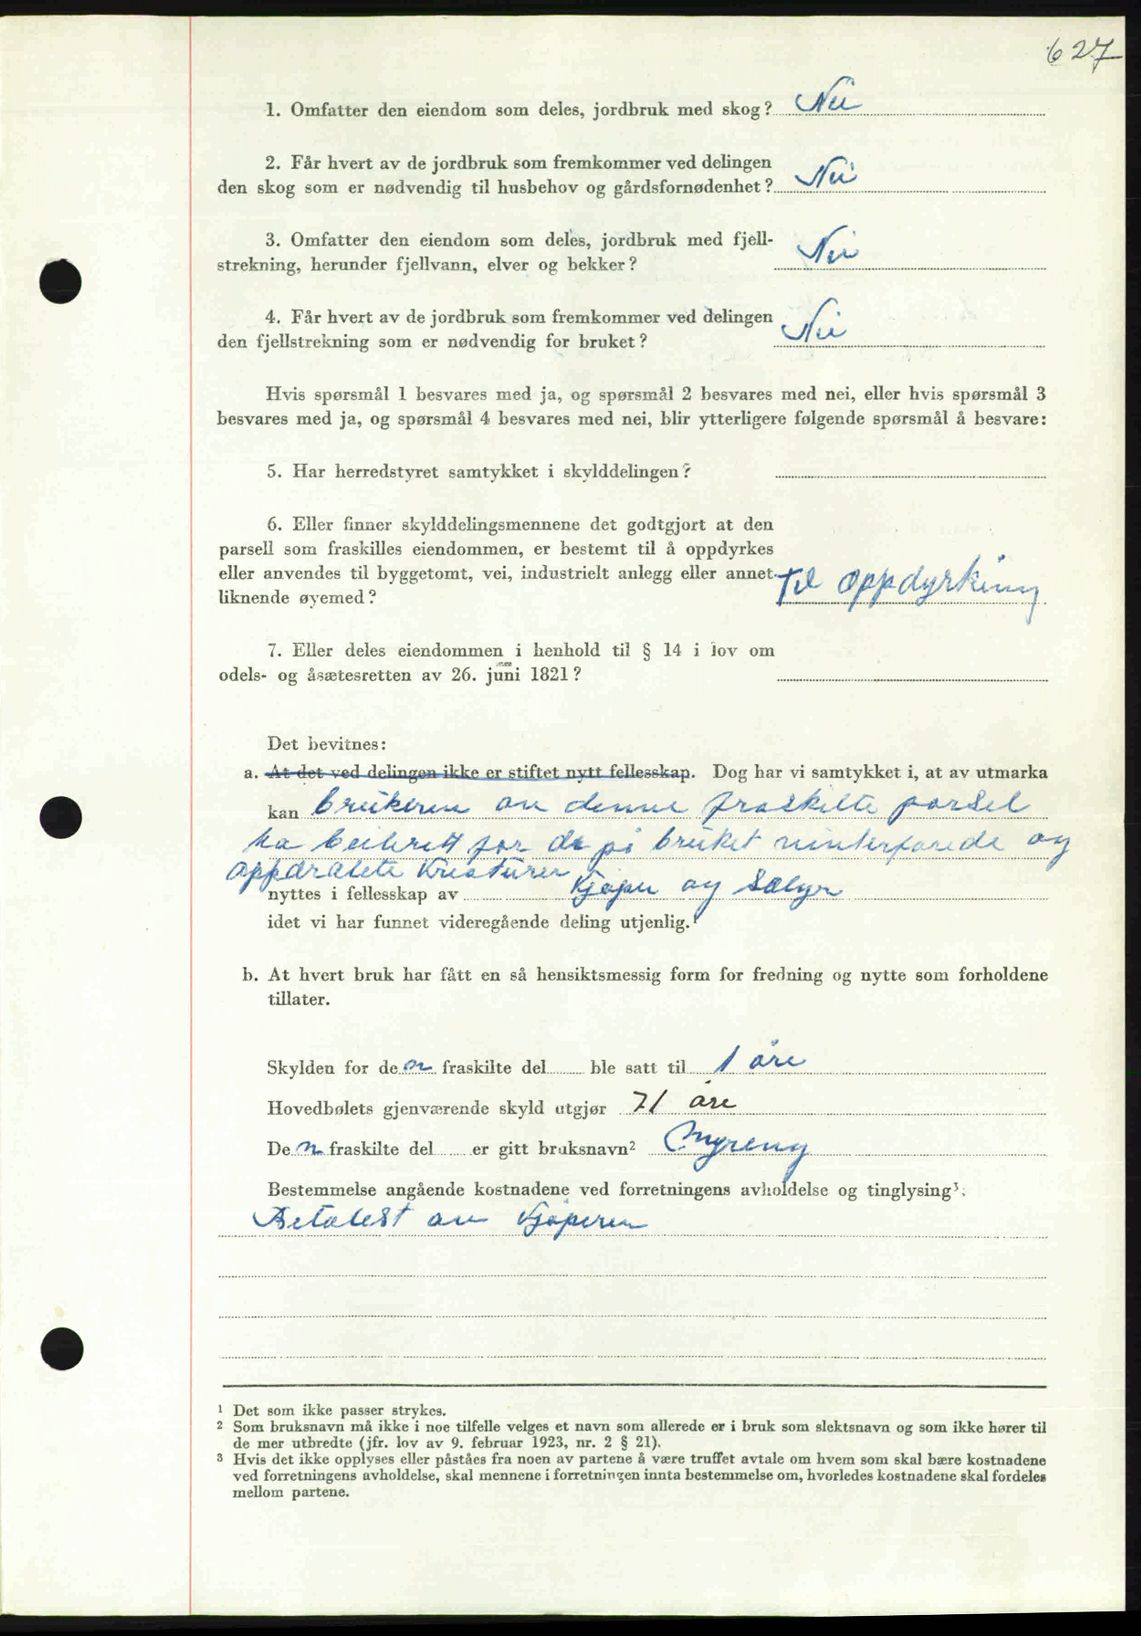 627
1. Omfatter den eiendom som deles, jordbruk med skog? Nei
2. Får hvert av de jordbruk som fremkommer ved delingen
den skog som er nødvendig til husbehov og gårdsfornødenhet? Nei
3. Omfatter den eiendom som deles, jordbruk med fjell-
strekning, herunder fjellvann, elver og bekker? Nei
4. Får hvert av de jordbruk som fremkommer ved delingen
den fjellstrekning som er nødvendig for bruket? Nei
Hvis spørsmål 1 besvares med ja, og spørsmål 2 besvares med nei, eller hvis spørsmål 3
besvares med ja, og spørsmål 4 besvares med nei, blir ytterligere følgende spørsmål å besvare:
5. Har herredstyret samtykket i skylddelingen?
6. Eller finner skylddelingsmennene det godtgjort at den
parsell som fraskilles eiendommen, er bestemt til å oppdyrkes
eller anvendes til byggetomt, vei, industrielt anlegg eller annet
liknende øyemed? Til oppdyrking
7. Eller deles eiendommen i henhold til § 14 i lov om
odels- og åsætesretten av 26. juni 1821?
Det bevitnes:
a. At det ved delingen ikke er stiftet nytt fellesskap. Dog har vi samtykket i, at av utmarka
kan brukeren av denne fraskilte parsel
ha beiterett for de på bruket vinterforede og
oppdratete Kreaturer
nyttes i fellesskap av Kjøper og Selger
idet vi har funnet videregående deling utjenlig.¹
b. At hvert bruk har fått en så hensiktsmessig form for fredning og nytte som forholdene
tillater.
Skylden for den fraskilte del ble satt til 1 øre
Hovedbølets gjenværende skyld utgjør 71 øre
Den fraskilte del er gitt bruksnavn² Myreng
Bestemmelse angående kostnadene ved forretningens avholdelse og tinglysing³:
Betalest av Kjøperen
¹ Det som ikke passer strykes.
² Som bruksnavn må ikke i noe tilfelle velges et navn som allerede er i bruk som slektsnavn og som ikke hører til
de mer utbredte (jfr. lov av 9. februar 1923, nr. 2 § 21).
³ Hvis det ikke opplyses eller påståes fra noen av partene å være truffet avtale om hvem som skal bære kostnadene
ved forretningens avholdelse, skal mennene i forretningen innta bestemmelse om, hvorledes kostnadene skal fordeles
mellom partene.